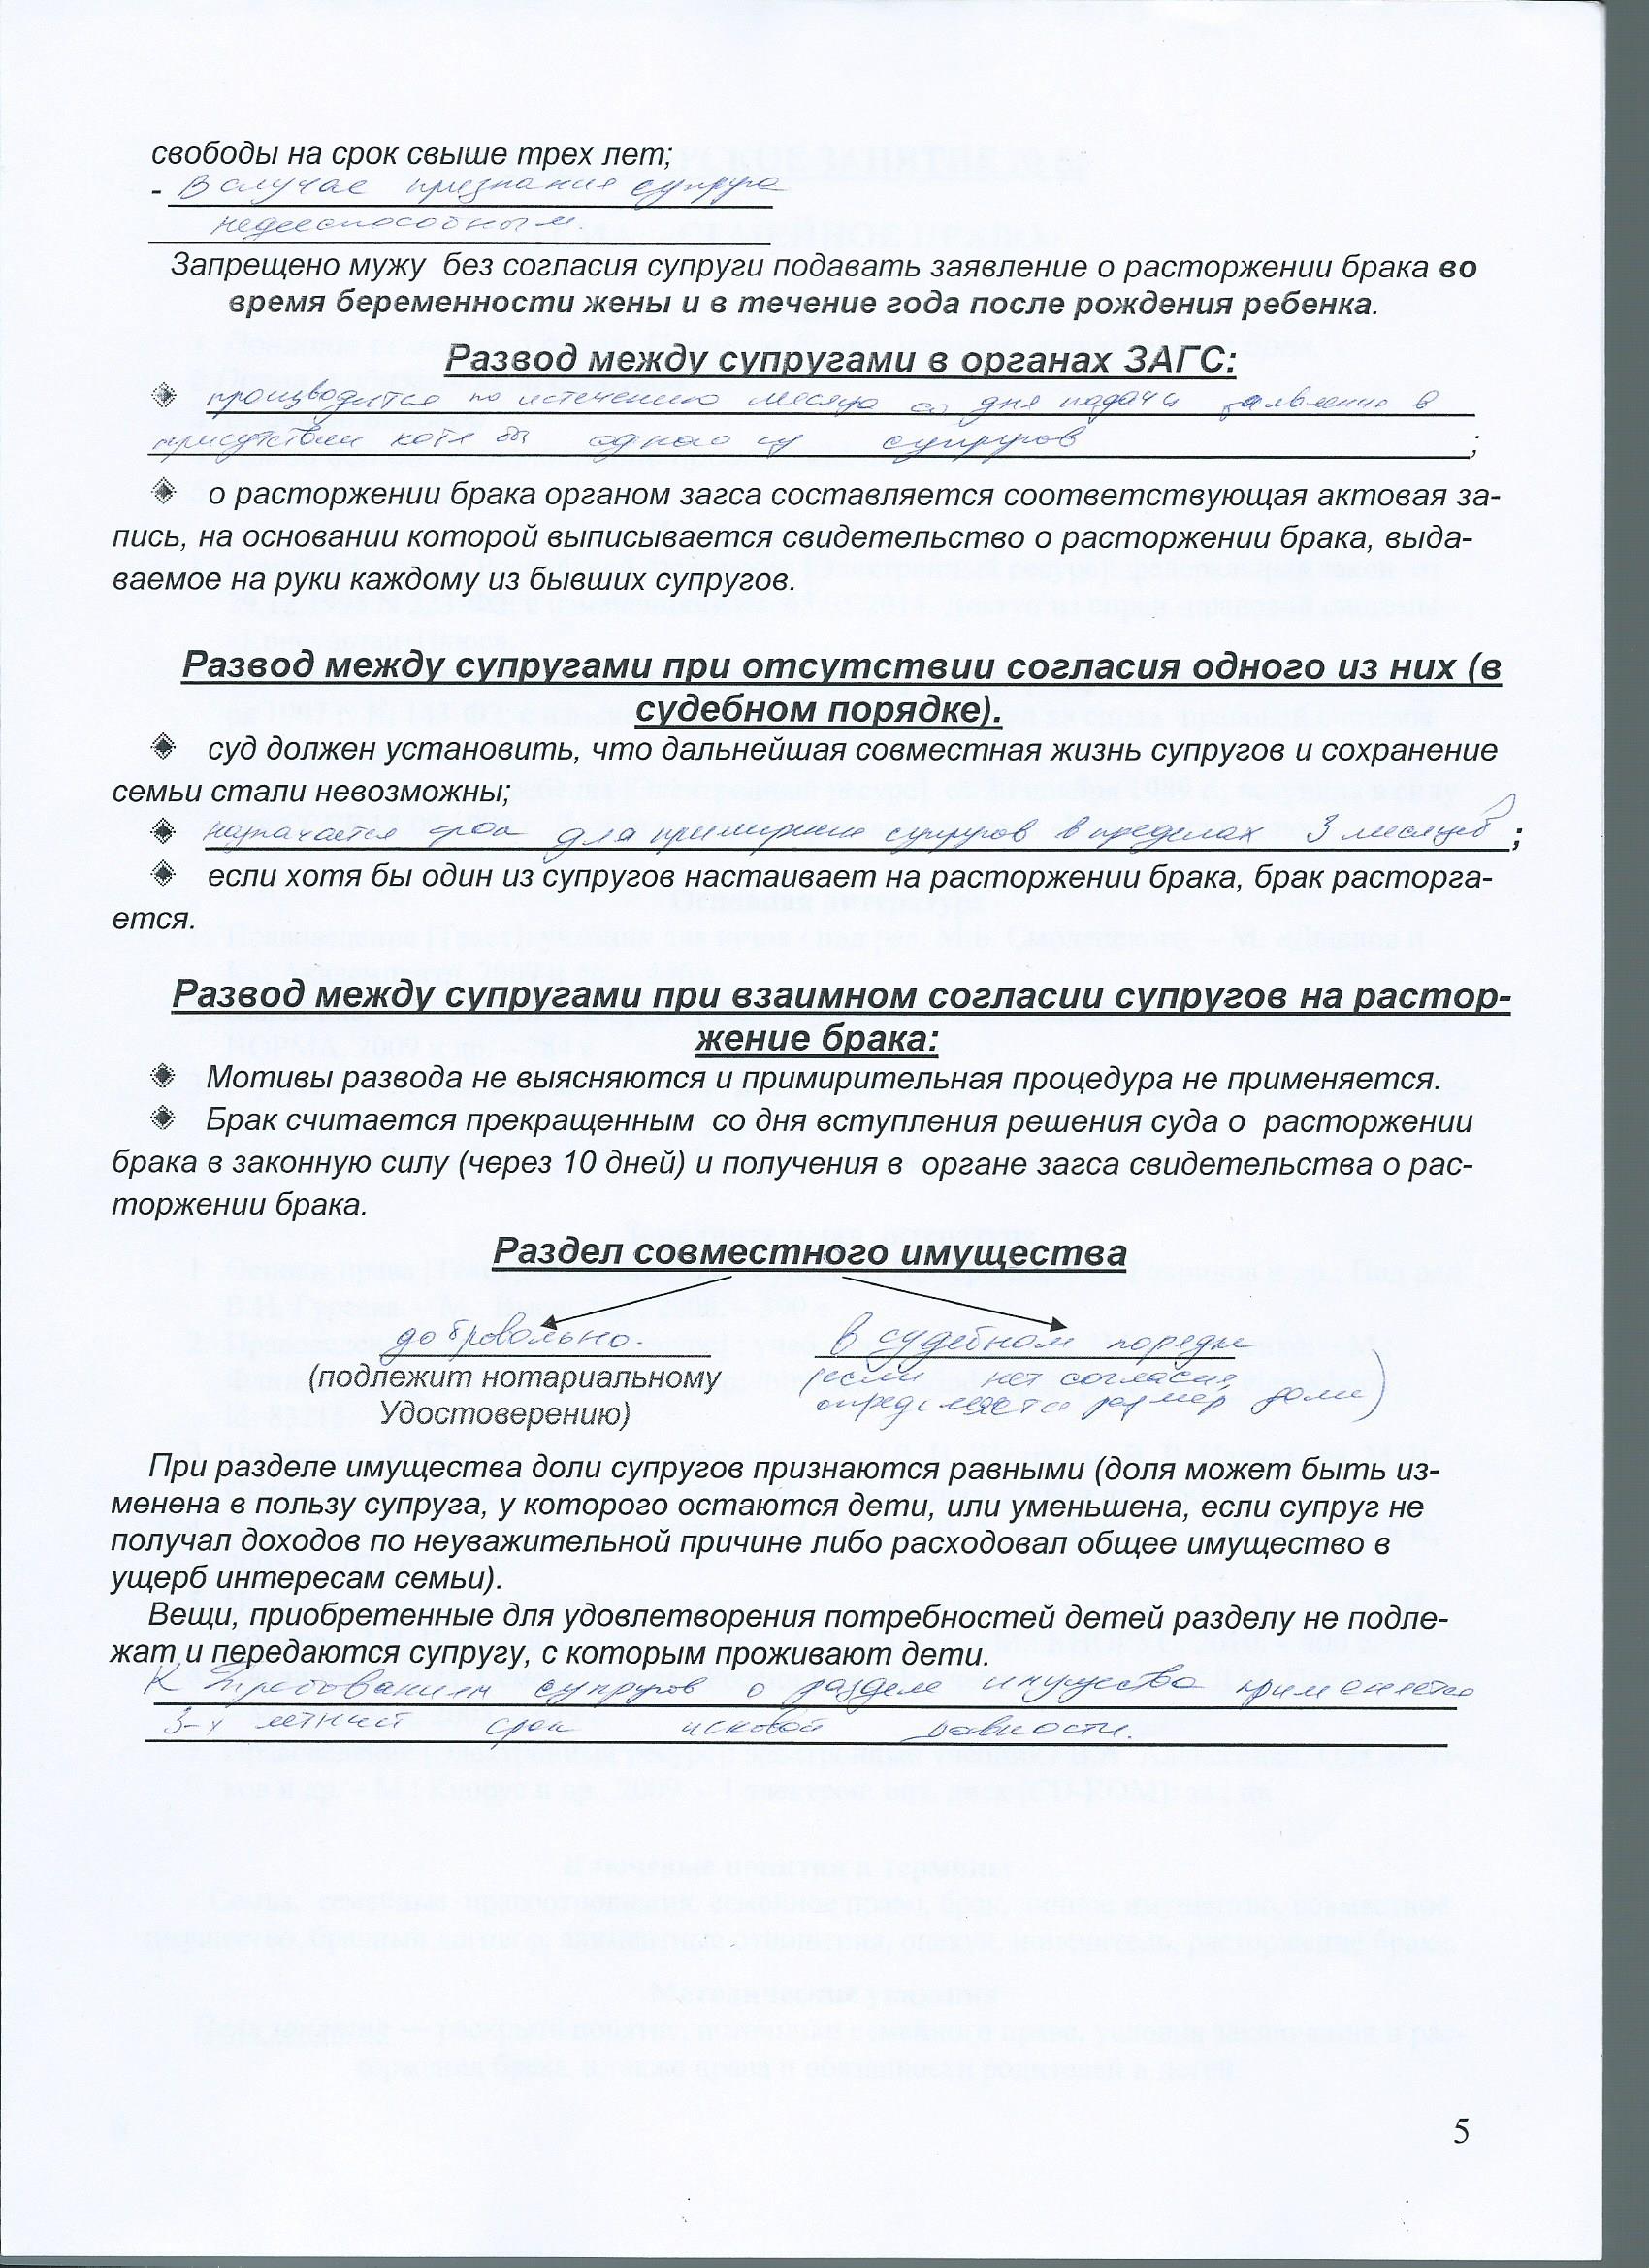 свободы на срок свыше трех лет;
- В случае признания супруга
недееспособным.
Запрещено мужу без согласия супруги подавать заявление о расторжении брака во
время беременности жены и в течение года после рождения ребенка.
Развод между супругами в органах ЗАГС:
производится по истечению месяца со дня подачи заявления в
присутствии хотя бы одного из супругов ;
о расторжении брака органом загса составляется соответствующая актовая за-
пись, на основании которой выписывается свидетельство о расторжении брака, выда-
ваемое на руки каждому из бывших супругов.
Развод между супругами при отсутствии согласия одного из них (в
судебном порядке).
суд должен установить, что дальнейшая совместная жизнь супругов и сохранение
семьи стали невозможны;
назначается срок для примирения супругов в пределах 3 месяцев ;
если хотя бы один из супругов настаивает на расторжении брака, брак расторга-
ется.
Развод между супругами при взаимном согласии супругов на растор-
жение брака:
Мотивы развода не выясняются и примирительная процедура не применяется.
Брак считается прекращенным со дня вступления решения суда о расторжении
брака в законную силу (через 10 дней) и получения в органе загса свидетельства о рас-
торжении брака.
Раздел совместного имущества
добровольно. в судебном порядке
(подлежит нотариальному (если нет согласия,
Удостоверению) определяется размер доли)
При разделе имущества доли супругов признаются равными (доля может быть из-
менена в пользу супруга, у которого остаются дети, или уменьшена, если супруг не
получал доходов по неуважительной причине либо расходовал общее имущество в
ущерб интересам семьи).
Вещи, приобретенные для удовлетворения потребностей детей разделу не подле-
жат и передаются супругу, с которым проживают дети.
К требованиям супругов о разделе имущества применяется
3-х летний срок исковой давности.
5